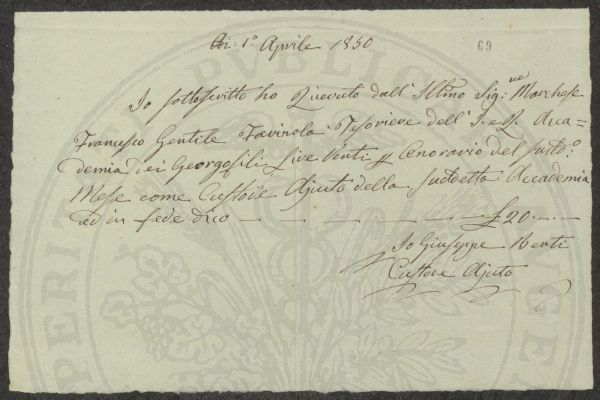 Ai: 1o Aprile 1850
69
Io sottoscritto ho Ricevuto dall' Illmo Sig:re Marchese
Francesco Gentile Farinola Tesoriere dell' I. e R. Acca=
demia dei Georgofili Lire Venti p Onorario del sudd:o
Mese come Custode Ajuto della Suddetta Accademia
ed in fede dico — — — — — — £ 20. —. —
Io Giuseppe Menti
Custode Ajuto